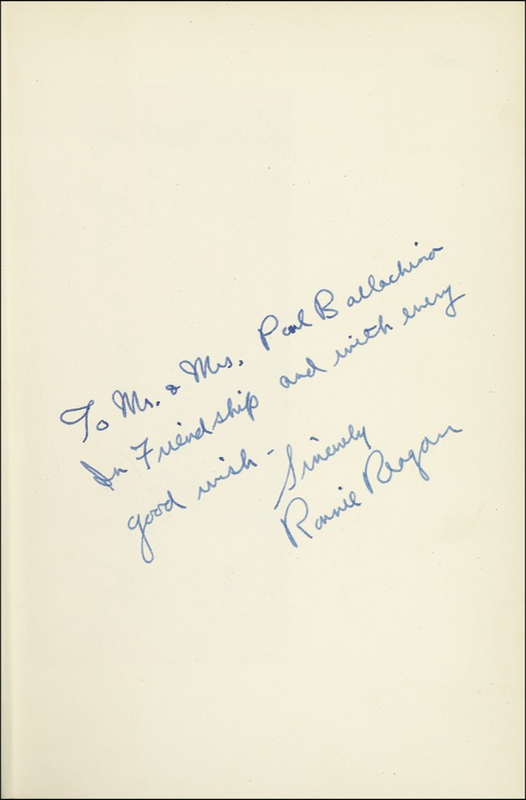 To Mr. & Mrs. Paul Ballachino
In Friendship and with every
good wish - Sincerely
Ronnie Reagan